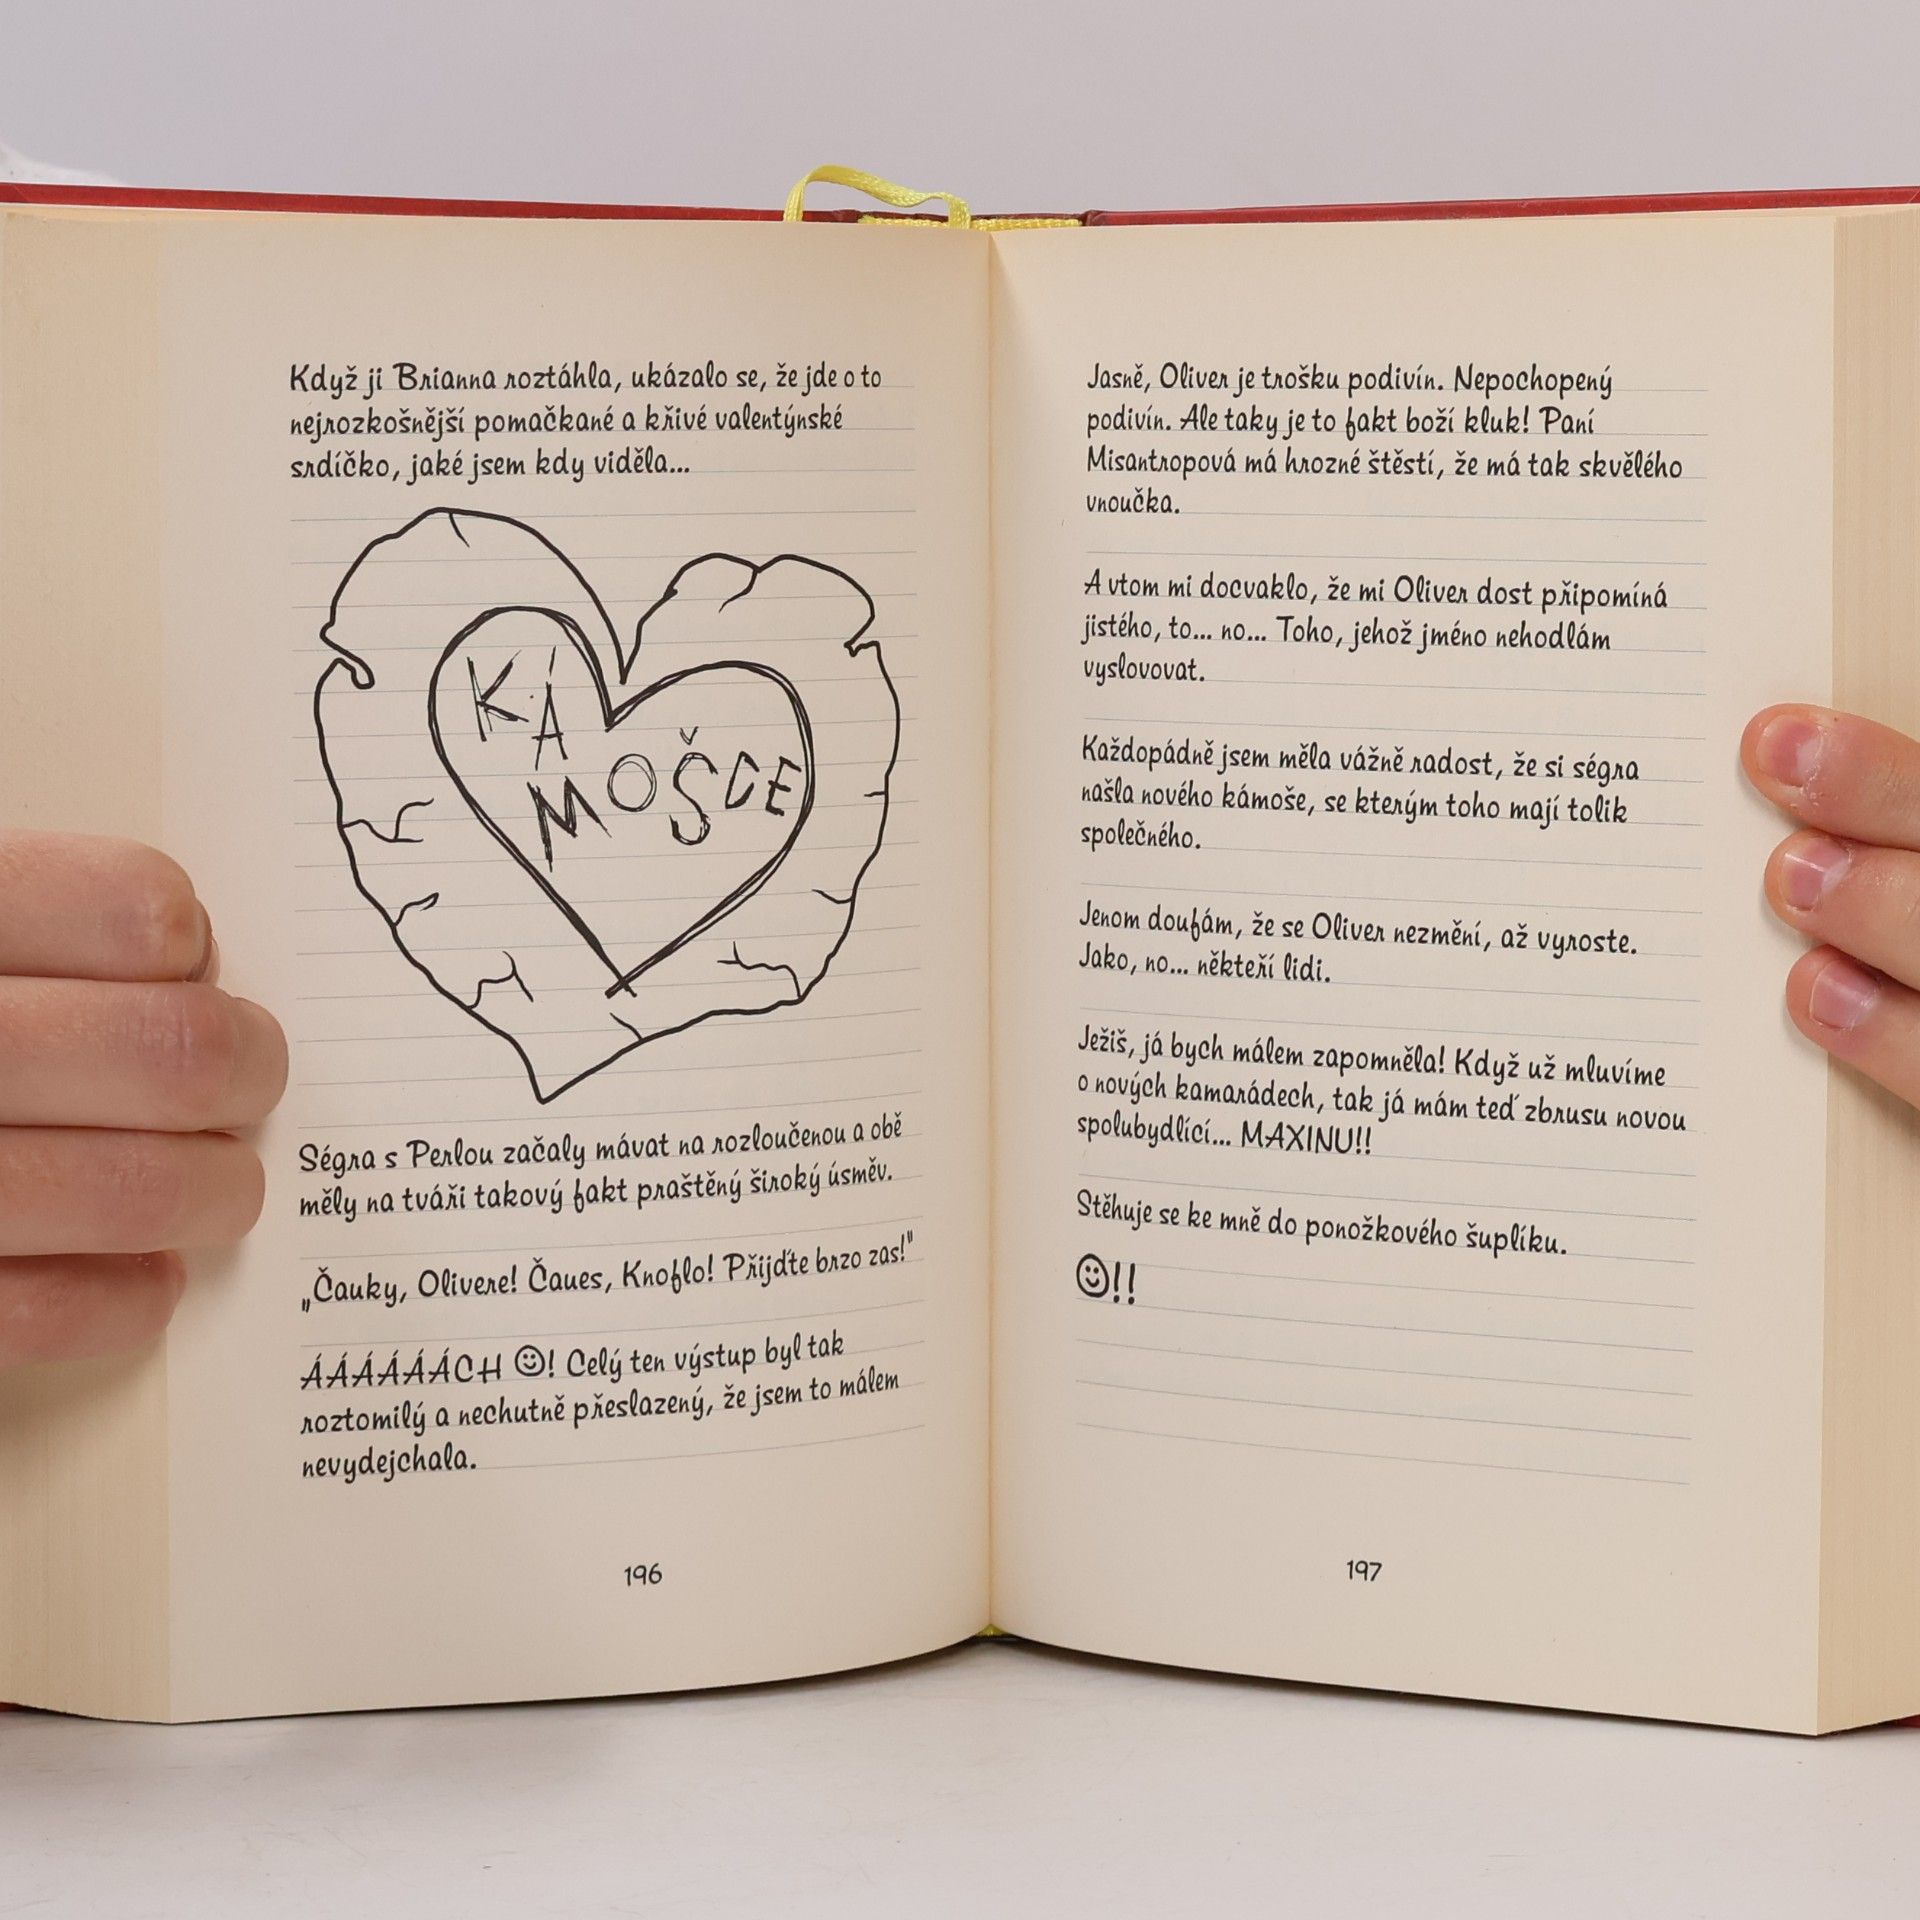 Když ji Brianna roztáhla, ukázalo se, že jde o to
nejrozkošnější pomačkané a křivé valentýnské
srdíčko, jaké jsem kdy viděla...
KÁ
MOŠCE
Ségra s Perlou začaly mávat na rozloučenou a obě
měly na tváři takový fakt praštěný široký úsměv.
„Čauky, Olivere! Čaues, Knoflo! Přijďte brzo zas!"
ÁÁÁÁÁÁCH ☺! Celý ten výstup byl tak
roztomilý a nechutně přeslazený, že jsem to málem
nevydejchala.
196
Jasně, Oliver je trošku podivín. Nepochopený
podivín. Ale taky je to fakt boží kluk! Paní
Misantropová má hrozné štěstí, že má tak skvělého
vnoučka.
A vtom mi docvaklo, že mi Oliver dost připomíná
jistého, to... no... Toho, jehož jméno nehodlám
vyslovovat.
Každopádně jsem měla vážně radost, že si ségra
našla nového kámoše, se kterým toho mají tolik
společného.
Jenom doufám, že se Oliver nezmění, až vyroste.
Jako, no... někteří lidi.
Ježiš, já bych málem zapomněla! Když už mluvíme
o nových kamarádech, tak já mám teď zbrusu novou
spolubydlící... MAXINU!!
Stěhuje se ke mně do ponožkového šuplíku.
☺!!
197